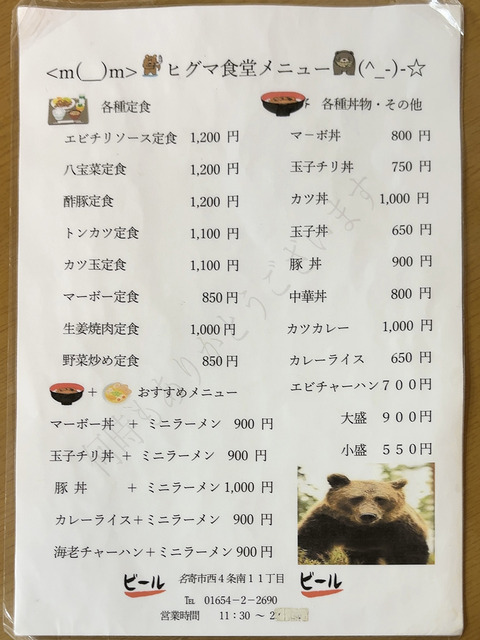 <m(__)m> ヒグマ食堂メニュー (^_-)-☆
各種定食
エビチリソース定食 1,200 円
八宝菜定食 1,200 円
酢豚定食 1,200 円
トンカツ定食 1,100 円
カツ玉定食 1,100 円
マーボー定食 850円
生姜焼肉定食 1,000円
野菜炒め定食 850円
各種丼物・その他
マーボ丼 800 円
玉子チリ丼 750 円
カツ丼 1,000 円
玉子丼 650 円
豚 丼 900 円
中華丼 800 円
カツカレー 1,000 円
カレーライス 650 円
エビチャーハン７００円
大盛 ９００円
小盛 ５５０円
＋ おすすめメニュー
マーボー丼 ＋ ミニラーメン 900 円
玉子チリ丼 ＋ ミニラーメン 900 円
豚 丼 ＋ ミニラーメン 1,000 円
カレーライス＋ミニラーメン 900 円
海老チャーハン＋ミニラーメン 900円
ビール 名寄市西４条南１１丁目 ビール
℡ 01654－2－2690
営業時間 11：30 ～ 2
何時もありがとうございます